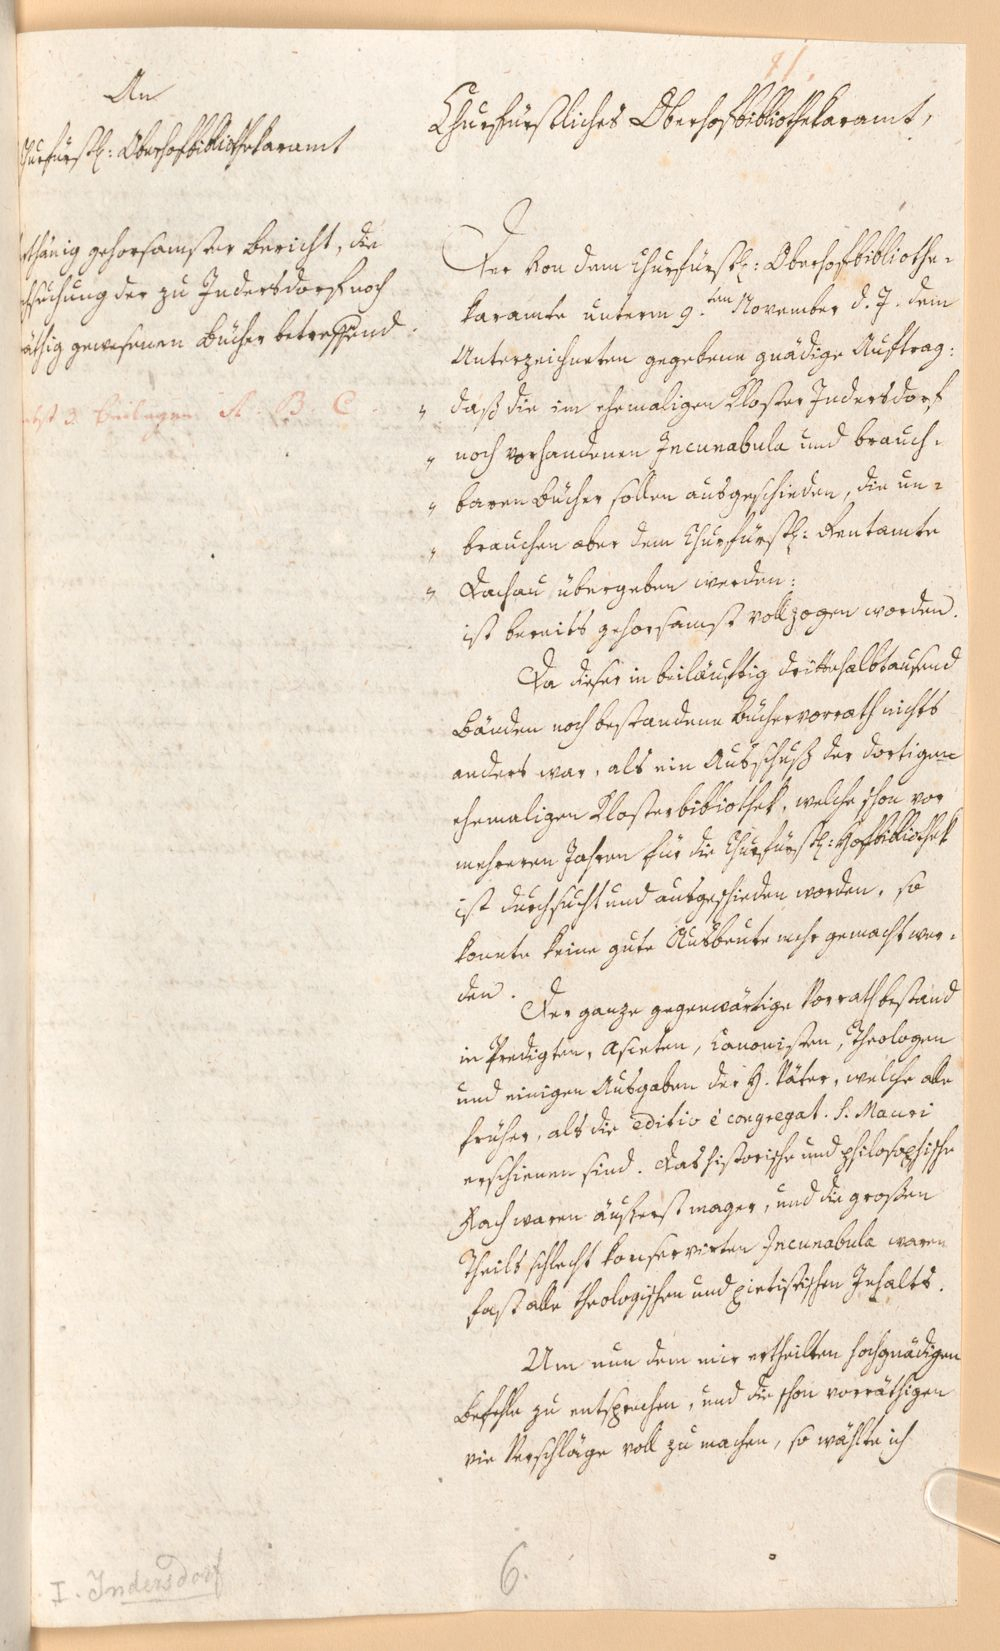 An
Churfürstl: Oberhofbibliothekaramt
thänig gehorsamster Bericht, die
suchung der zu Indersdorf noch
räthig gewesenen Bücher betreffend.
nebst 3. Beilagen A. B. C.
71.
Churfürstliches Oberhofbibliothekaramt,
Der von dem Churfürstl: Oberhofbibliothe-
karamte unterm 9.ten November d. J. dem
Unterzeichneten gegebene gnädige Auftrag:
„ daß die im ehemaligen Kloster Indersdorf
„ noch vorhandenen Incunabula und brauch-
„ baren Bücher sollen ausgeschieden, die un-
„ brauchen aber dem Churfürstl: Rentamte
„ Dachau übergeben werden:
ist bereits gehorsamst vollzogen worden.
Da dieser in beiläuftig drittehalbtausend
Bänden noch bestandene Büchervorrath nichts
anders war, als ein Ausschuß der dortigen
ehemaligen Klosterbibliothek, welche schon vor
mehreren Jahren für die Churfürstl: Hofbibliothek
ist durchsucht und ausgeschieden worden, so
konnte keine gute Ausbeute mehr gemacht wer-
den.
Der ganze gegenwärtige Vorrath bestand
in Predigten, Asceten, Kanonisten, Theologen
und einigen Ausgaben der H. Väter, welche alle
früher, als die editio è congregat. S. Mauri
erschienen sind. Das historische und philosophische
Fach waren äusserst mager, und die großen
Theils schlecht konservirten Incunabula waren
fast alle theologischen und pietistischen Inhalts.
Um nun dem mir ertheilten hochgnädigen
Befehle zu entsprechen, und die schon vorräthigen
vie Verschläge voll zu machen, so wählte ich
I. Indersdorf
6.